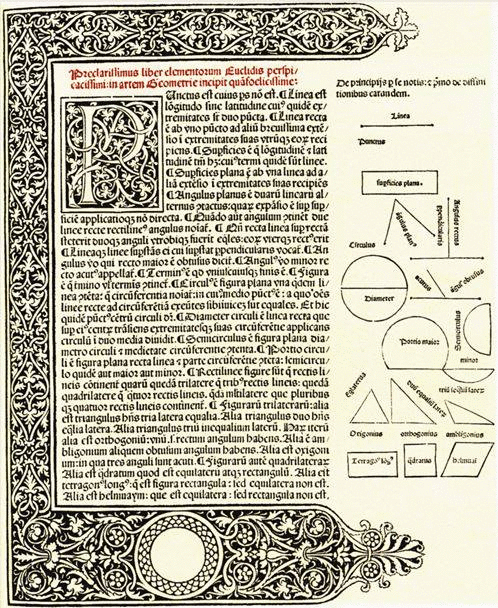 Preclarissimus liber elementorum Euclidis perspi/
cacissimi: in artem Geometrie incipit quàfoelicissime:
Punctus est cuius ps nõ est. ¶ Linea est
lõgitudo sine latitudine cuiꝰ quidẽ ex/
tremitates st̃ duo pũcta. ¶ Linea recta
ẽ ab vno pũcto ad aliũ breuissima extẽ/
sio ĩ extremitates suas vtrũqꝫ eoꝝ reci
piens. ¶ Supficies ẽ q̃ lõgitudinẽ ⁊ lati
tudinẽ tm̃ hꝫ: cuiꝰ termi quidẽ sũt linee.
¶ Supficies plana ẽ ab vna linea ad a/
liã extẽsio ĩ extremitates suas recipiẽs
¶ Angulus planus ẽ duarũ linearũ al/
ternus ꝯtactus: quaꝝ expãsio ẽ sup sup/
ficiẽ applicatioqꝫ nõ directa. ¶ Quãdo aut angulum ꝯtinẽt due
linee recte rectilineꝰ angulus noiat̃. ¶ Qñ recta linea sup rectã
steterit duoqꝫ anguli vtrobiqꝫ fuerit eq̃les: eoꝝ vterqꝫ rectꝰ erit
¶ Lineaqꝫ linee supstãs ei cui supstat ppendicularis vocat̃. ¶ An
gulus vo qui recto maior ẽ obtusus dicit̃. ¶ Angulꝰ vo minor re
cto acutꝰ appellat̃. ¶ Terminꝰ ẽ qd vniuscuiusqꝫ finis ẽ. ¶ Figura
ẽ q̃ tmino vl' termis ꝯtinet̃. ¶ Circulꝰ ẽ figura plana vna qdem li/
nea ꝯtẽta: q̃ circũferentia noiat̃: in cuiꝰ medio pũctꝰ ẽ: a quo oẽs
linee recte ad circũferẽtiã exeũtes sibiinuicẽ sut equales. Et hic
quidẽ pũctꝰ cẽtrũ circuli dr̃. ¶ Diameter circuli ẽ linea recta que
sup eiꝰ centꝝ trãsiens extremitatesqꝫ suas circũferẽtie applicans
circulũ ĩ duo media diuidit. ¶ Semicirculus ẽ figura plana dia/
metro circuli ⁊ medietate circũferentie ꝯtenta. ¶ Portio circu/
li ẽ figura plana recta linea ⁊ parte circũferẽtie ꝯtẽta: semicircu/
lo quidẽ aut maior aut minor. ¶ Rectilinee figure sũt q̃ rectis li/
neis cõtinent̃ quarũ quedã trilatere q̃ tribꝰ rectis lineis: quedã
quadrilatere q̃ qtuor rectis lineis. qdã mltilatere que pluribus
qꝫ quatuor rectis lineis continent̃. ¶ Figurarũ trilaterarũ: alia
est triangulus hñs tria latera equalia. Alia triangulus duo hñs
eq̃lia latera. Alia triangulus triũ inequalium laterũ. Haꝝ iterũ
alia est orthogoniũ: vnũ .s. rectum angulum habens. Alia ẽ am/
bligonium aliquem obtusum angulum habens. Alia est oxigoni
um: in qua tres anguli sunt acuti. ¶ Figurarũ autẽ quadrilateraꝝ
Alia est q̃dratum quod est equilaterũ atqꝫ rectangulũ. Alia est
tetragonꝰ longꝰ: q̃ est figura rectangula: sed equilatera non est.
Alia est helmuaym: que est equilatera: sed rectangula non est.
De principijs p se notis: ⁊ pmo de diffini
tionibus earundem.
Linea
Punctus
supficies plana.
ãgulus planꝰ
ppendicularis
Angulus rectus
Circulus
Diameter
acutus
ãgꝰ obtusus
Portio maior
Semicirculus
minor
Eqlaterus
duũ equaliũ laterꝝ
triũ ĩeq̃liũ laterꝝ
Oxigonius
orthogonius
ambligonius
Tetragonꝰ lõgꝰ
q̃dratus
helmuaī